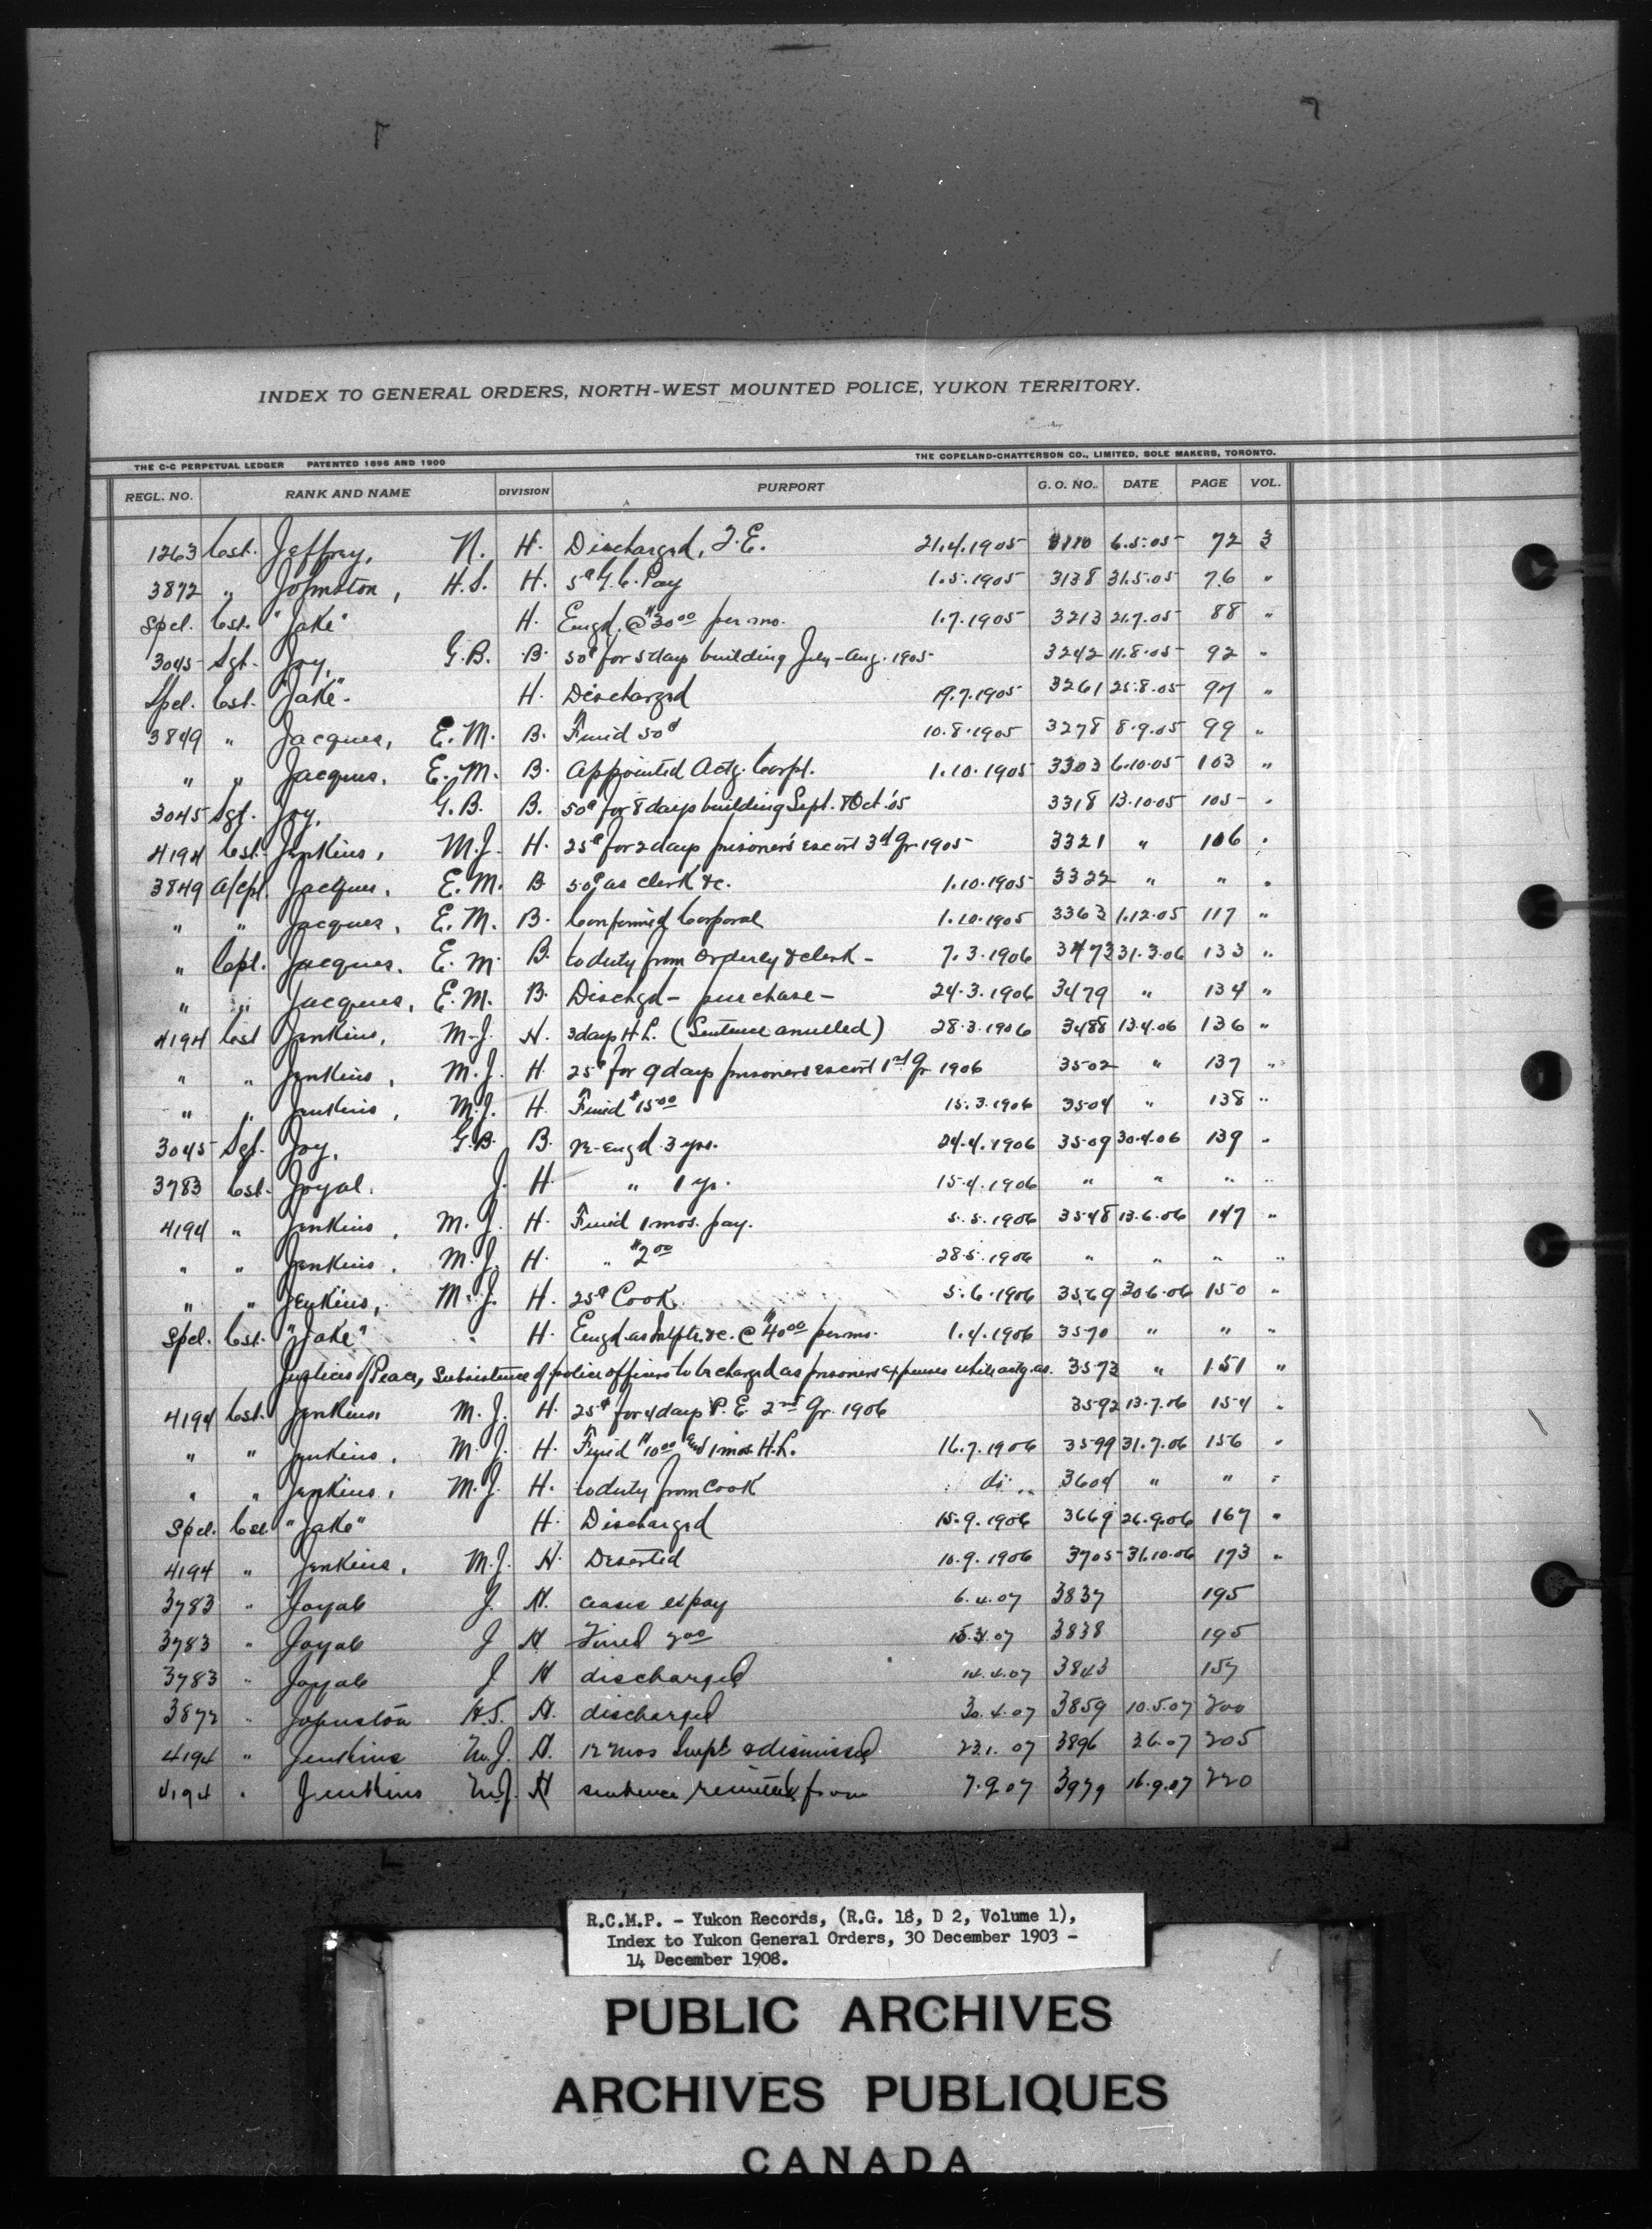 INDEX TO GENERAL ORDERS, NORTH-WEST MOUNTED POLICE, YUKON TERRITORY.
THE C-C PERPETUAL LEDGER PATENTED 1896 AND 1900 THE COPELAND-CHATTERSON CO., LIMITED, SOLE MAKERS, TORONTO.
REGL. NO. RANK AND NAME DIVISION PURPORT G. O. NO. DATE PAGE VOL.
1263 Cst. Jeffrey, N. H. Discharged, T.E. 21.4.1905 3110 6.5.05 72 3
3872 " Johnston, H.S. H. 5¢ G.C. Pay 1.5.1905 3138 31.5.05 76 "
Spel. Cst. "Jake" H. Engd. @ $30.00 per mo. 1.7.1905 3213 21.7.05 88 "
3045 Sgt. Joy, G.B. B. 50¢ for 5 days building July-Aug. 1905 3242 11.8.05 92 "
Spel. Cst. "Jake". H. Discharged 19.7.1905 3261 25.8.05 97 "
3849 " Jacques, E.M. B. Fined 50¢ 10.8.1905 3278 8.9.05 99 "
" " Jacques, E.M. B. Appointed Actg. Corpl. 1.10.1905 3303 6.10.05 103 "
3045 Sgt. Joy, G.B. B. 50¢ for 8 days building Sept. & Oct. '05 3318 13.10.05 105 "
4194 Cst. Jenkins, M.J. H. 25¢ for 2 days prisoner's escort 3rd Qr 1905 3321 " 106 "
3849 A/Cpl. Jacques, E.M. B 50¢ as clerk &c. 1.10.1905 3322 " " "
" " Jacques, E.M. B. Confirmed Corporal 1.10.1905 3363 1.12.05 117 "
" Cpl. Jacques, E.M. B. to duty from orderly & clerk - 7.3.1906 3473 31.3.06 133 "
" " Jacques, E.M. B. Dischgd - purchase - 24.3.1906 3479 " 134 "
4194 Cst Jenkins, M.J. H. 3 days H.L. (Sentence annulled) 28.3.1906 3488 13.4.06 136 "
" " Jenkins, M.J. H. 25¢ for 9 days prisoners escort 1st Qr 1906 3502 " 137 "
" " Jenkins, M.J. H. Fined $15.00 15.3.1906 3504 " 138 "
3045 Sgt. Joy, G.B. B. Re-engd 3 yrs. 24.4.1906 3509 30.4.06 139 "
3783 Cst. Joyal, J. H. " 1 yr. 15.4.1906 " " " "
4194 " Jenkins, M.J. H. Fined 1 mos. pay. 5.5.1906 3548 13.6.06 147 "
" " Jenkins, M.J. H. " $2.00 28.5.1906 " " " "
" " Jenkins, M.J. H. 25¢ Cook 5.6.1906 3569 30.6.06 150 "
Spel. Cst. "Jake" H. Engd as &c. @ $40.00 per mo. 1.4.1906 3570 " " "
Justices of Peace, Subsistence of police officers to be charged as prisoners expenses while actg. as. 3573 " 151 "
4194 Cst. Jenkins M.J. H. 25¢ for 4 days P.E. 2nd Qr. 1906 3592 13.7.06 154 "
" " Jenkins, M.J. H. Fined $10.00 and 1 mos. H.L. 16.7.1906 3599 31.7.06 156 "
" " Jenkins, M.J. H. to duty from cook do " 3604 " " "
Spel. Cst "Jake" H. Discharged 15.9.1906 3669 26.9.06 167 "
4194 " Jenkins, M.J. H. Deserted 10.9.1906 3705 31.10.06 173 "
3783 " Joyal J. H. ceases ex pay 6.4.07 3837 195
3783 " Joyal J H Fined 2.00 15.3.07 3838 195
3783 " Joyal J H discharged 14.4.07 3843 157
3872 " Johnston H.S. H. discharged 30.4.07 3859 10.5.07 200
4194 " Jenkins M.J. H. 12 mos Impt & dismissed 23.1.07 3896 3.6.07 205
4194 " Jenkins M.J. H sentence remitted from 7.9.07 3979 16.9.07 220
R.C.M.P. - Yukon Records, (R.G. 18, D 2, Volume 1),
Index to Yukon General Orders, 30 December 1903 -
14 December 1908.
PUBLIC ARCHIVES
ARCHIVES PUBLIQUES
CANADA